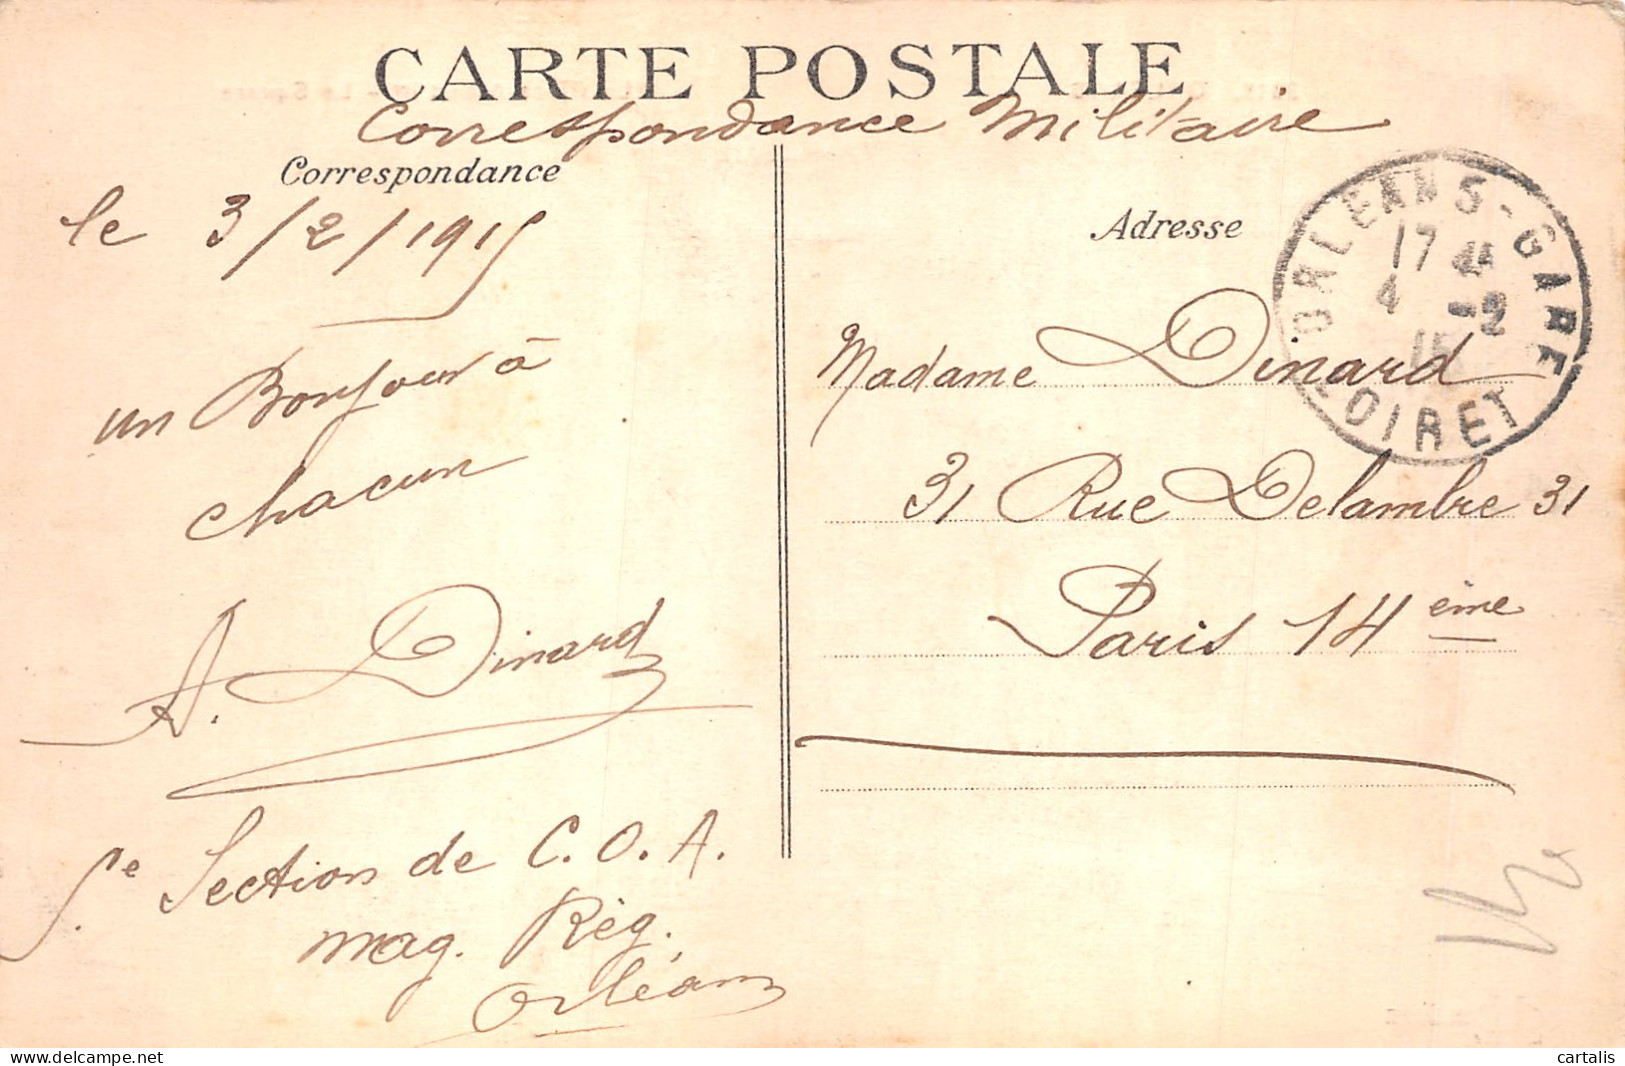 CARTE POSTALE
Correspondance Militaire
Correspondance
le 3/2/1915
un Bonjour à
chacun
A. Dinard
5e Section de C.O.A.
mag. Rég.
Orléans
Adresse
ORLEANS-GARE
17 45
4 -2
15
LOIRET
Madame Dinard
31 Rue Delambre 31
Paris 14ème
cartalis